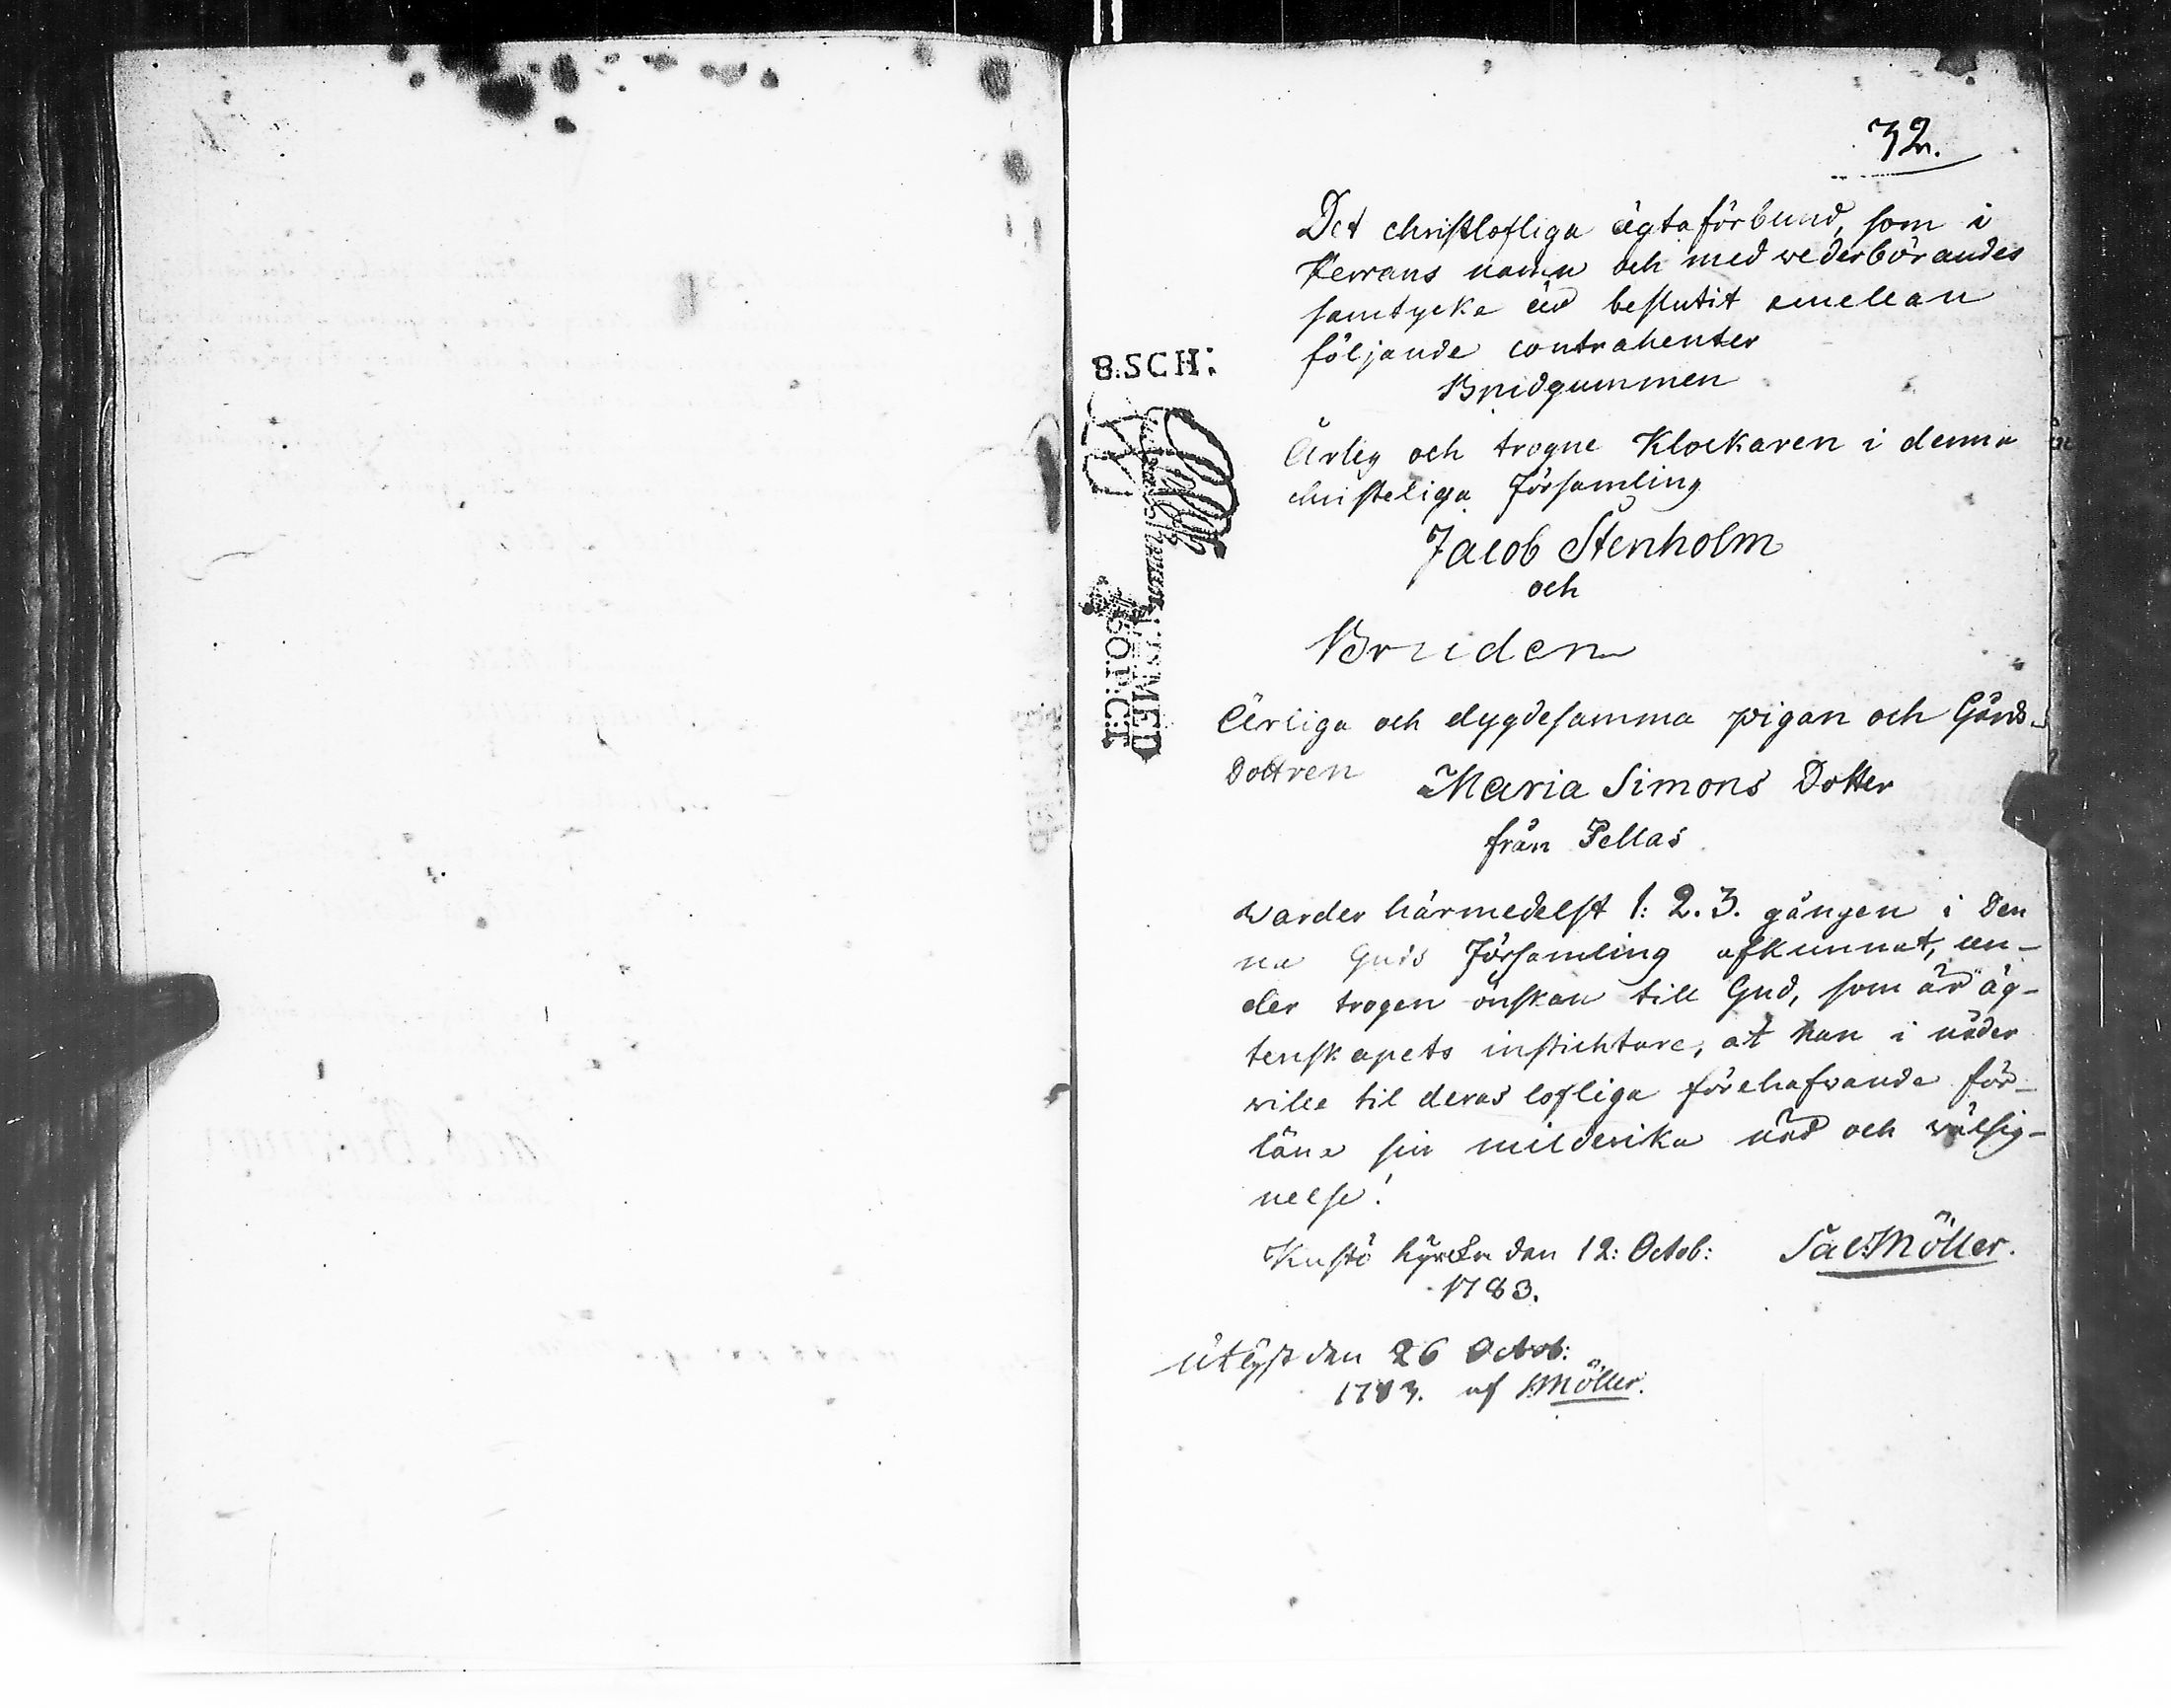 32.
Det christlofliga ägtaförbund, som i
Herrans namn och med wederbörandes
samtycke är beslutit emellan
följande contrahenter
Brudgummen
Ärlig och trogne Klockaren i denna
christeliga Församling
Jacob Stenholm
och
Bruden
Ärliga och dygdesamma pigan och Gårds-
Dottren Maria Simons Dotter
från Pellas
warder härmedelst 1: 2. 3. gången i den
na Guds Församling afkunnat, un-
der trogen önskan till Gud, som är äg-
tenskapets instichtare, at han i nåder
wille til deras lofliga förehafwande för-
läna sin milderika nåd och wälsig-
nelse!
Kustö kyrka den 12: Octob: Sal: Möller.
1783.
Utlyst den 26 Octob:
1783. af S: Möller.
8.SCH:
SÖLF:CT
MED